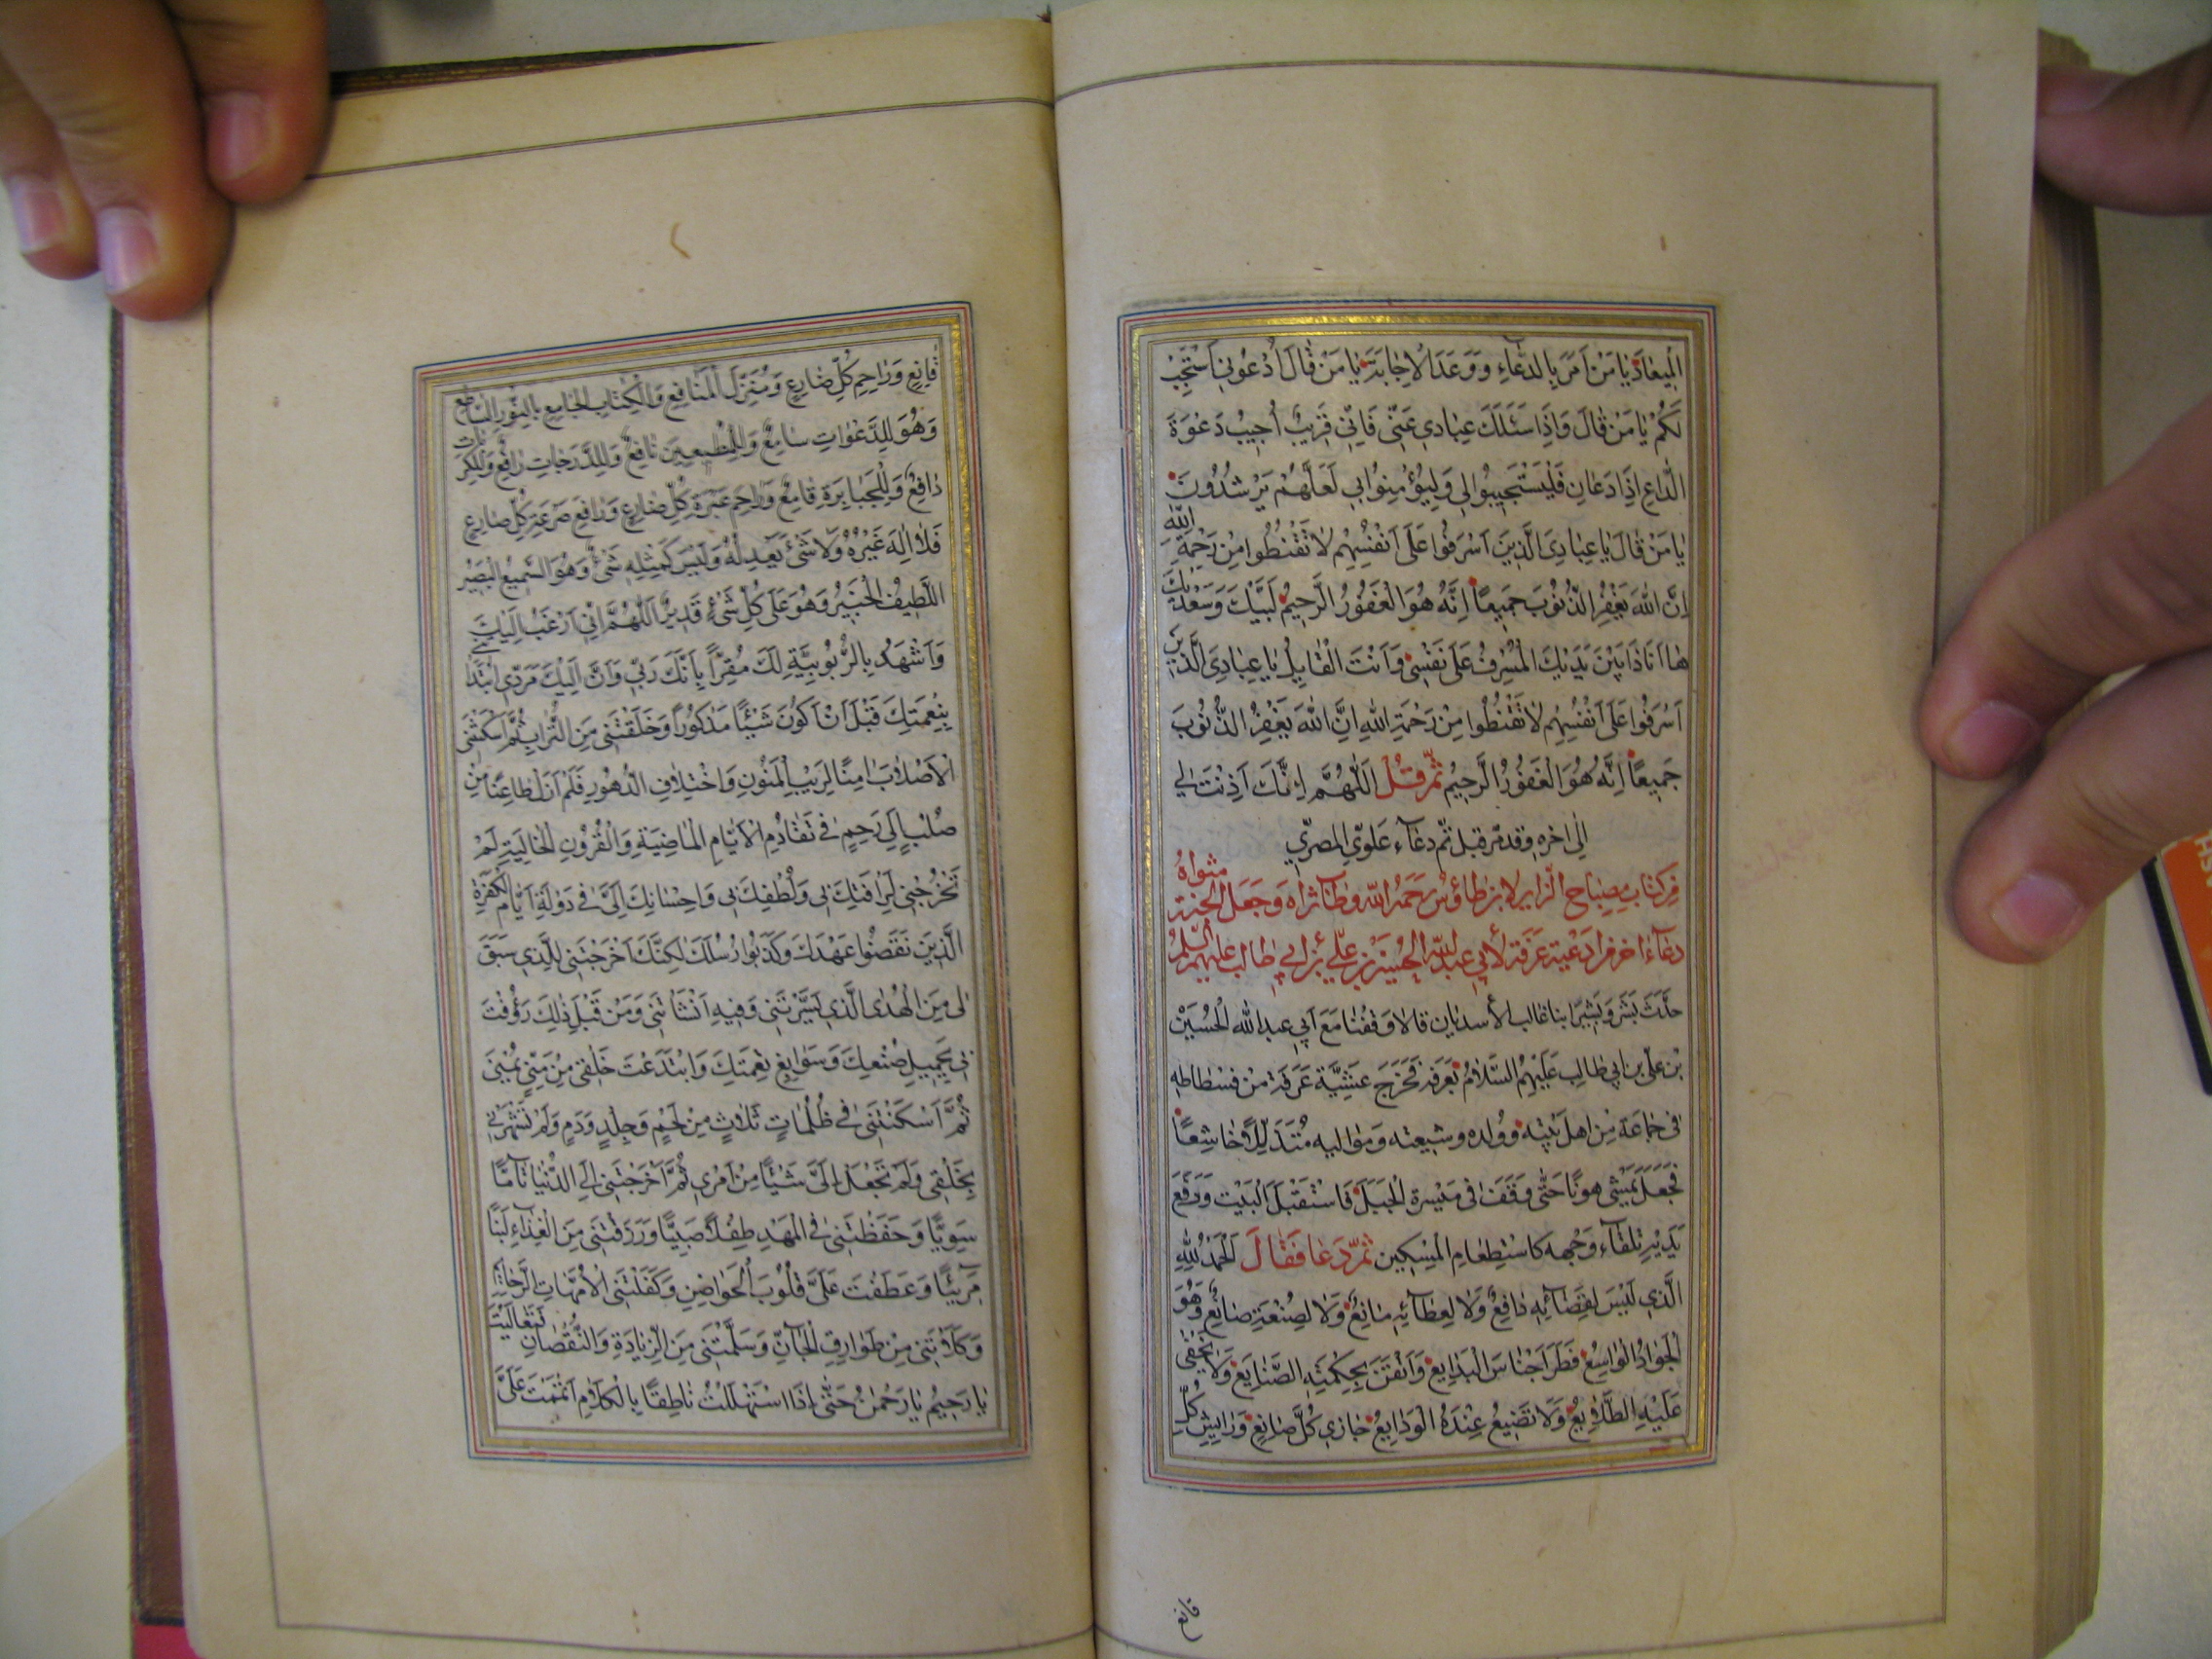 الْمِيعَادَ يَا مَنْ اَمَرَ بِالدُّعَاءِ وَوَعَدَ الْاِجَابَةَ يَا مَنْ قَالَ اُدْعُونِي اَسْتَجِبْ
لَكُمْ يَا مَنْ قَالَ وَاِذَا سَئَلَكَ عِبَادِي عَنِّي فَاِنِّي قَرِيبٌ اُجِيبُ دَعْوَةَ
الدَّاعِ اِذَا دَعَانِ فَلْيَسْتَجِيبُوا لِي وَلْيُؤْمِنُوا بِي لَعَلَّهُمْ يَرْشُدُونَ
يَا مَنْ قَالَ يَا عِبَادِيَ الَّذِينَ اَسْرَفُوا عَلَى اَنْفُسِهِمْ لَا تَقْنَطُوا مِنْ رَحْمَةِ اللهِ
اِنَّ اللهَ يَغْفِرُ الذُّنُوبَ جَمِيعاً اِنَّهُ هُوَ الْغَفُورُ الرَّحِيمُ لَبَّيْكَ وَسَعْدَيْكَ
هَا اَنَا ذَا بَيْنَ يَدَيْكَ الْمُسْرِفُ عَلَى نَفْسِي وَاَنْتَ الْقَايِلُ يَا عِبَادِيَ الَّذِينَ
اَسْرَفُوا عَلَى اَنْفُسِهِمْ لَا تَقْنَطُوا مِنْ رَحْمَةِ اللهِ اِنَّ اللهَ يَغْفِرُ الذُّنُوبَ
جَمِيعاً اِنَّهُ هُوَ الْغَفُورُ الرَّحِيمُ ثُمَّ قُلْ اَللّٰهُمَّ اِنَّكَ اَذِنْتَ لِي
اِلٰى اخره وقد مرّ قبل ثمّ دعاء عَلَوِيّ المصرِيّ
من كتاب مصباح الزاير لابن طاوُس رَحمَهُ الله وطاب ثراه وَجَعَل الجنة مثواهُ
دعاء اخر من ادعية عرفة لأبي عبد الله الحسين بن علي بن ابي طالب عليهم السّلم
حدّث بشر وبشير ابنا غالب الأسديان قالا وقفنا مَعَ ابي عبد الله الْحُسَيْن
بْن علي بن ابي طالِب عَلَيْهِمُ السَّلَامُ بعَرفة فَخَرَجَ عشيّة عَرَفَة من فسطاطه
في جَمَاعة مِن اهل بَيْتِه وولده وشيعته وَمَوَاليه مُتَذَلِّلاً خاشِعاً
فجَعَلَ يَمْشِي هونًا حَتّٰى وَقَفَ فى مَيْسرة الْجَبَلِ فَاسْتَقْبَلَ الْبَيْت وَرَفَعَ
يَدَيْهِ تلقاء وَجْهه كاستِطعَامِ الْمِسْكِين ثمّ دَعَا فَقَالَ الْحَمْدُ لِلّٰهِ
الَّذِي لَيْسَ لِقَضَائِهِ دَافِعٌ وَلَا لِعَطَائِهِ مَانِعٌ وَلَا لِصُنْعِهِ صَانِعٌ وَهُوَ
الْجَوَادُ الْوَاسِعُ فَطَرَ اَجْنَاسَ الْبَدَايِعِ وَاَتْقَنَ بِحِكْمَتِهِ الصَّنَايِعَ وَلَا يَخْفٰى
عَلَيْهِ الطَّلَايِعُ وَلَا تَضِيعُ عِنْدَهُ الْوَدَايِعُ جَازِي كُلِّ صَانِعٍ وَرَايِشِ كُلِّ
قانع
قَانِعٍ وَرَاحِمِ كُلِّ ضَارِعٍ وَمُنْزِلَ الْمَنَافِعِ وَالْكِتَابِ الْجَامِعِ بِالنُّورِ السَّاطِعِ
وَهُوَ لِلدَّعَوَاتِ سَامِعٌ وَلِلْمُطِيعِينَ نَافِعٌ وَلِلدَّرَجَاتِ رَافِعٌ وَلِلْكُرُبَاتِ
دَافِعٌ وَلِلْجَبَابِرَةِ قَامِعٌ وَرَاحِمِ عَبْرَةِ كُلِّ ضَارِعٍ وَرَافِعِ صَرْعَةِ كُلِّ ضَارِعٍ
فَلَا اِلٰهَ غَيْرُهُ وَلَا شَيْءَ يَعْدِلُهُ وَلَيْسَ كَمِثْلِهِ شَيْءٌ وَهُوَ السَّمِيعُ الْبَصِيرُ
اللَّطِيفُ الْخَبِيرُ وَهُوَ عَلَى كُلِّ شَيْءٍ قَدِيرٌ اَللّٰهُمَّ اِنِّي اَرْغَبُ اِلَيْكَ
وَاَشْهَدُ بِالرُّبُوبِيَّةِ لَكَ مُقِرّاً بِاَنَّكَ رَبِّي وَاَنَّ اِلَيْكَ مَرَدِّي ابْتَدَاْتَنِي
بِنِعْمَتِكَ قَبْلَ اَنْ اَكُونَ شَيْئًا مَذْكُوراً وَخَلَقْتَنِي مِنَ التُّرَابِ ثُمَّ اَسْكَنْتَنِي
الْاَصْلَابَ اٰمِنًا لِرَيْبِ الْمَنُونِ وَاخْتِلَافِ الدُّهُورِ فَلَمْ اَزَلْ ظَاعِنًا مِنْ
صُلْبٍ اِلٰى رَحِمٍ فِي تَقَادُمِ الْاَيَّامِ الْمَاضِيَةِ وَالْقُرُونِ الْخَالِيَةِ لَمْ
تُخْرِجْنِي لِرَاْفَتِكَ بِي وَلُطْفِكَ بِي وَاِحْسَانِكَ اِلَيَّ فِي دَوْلَةِ اَيَّامِ الْكَفَرَةِ
الَّذِينَ نَقَضُوا عَهْدَكَ وَكَذَّبُوا رُسُلَكَ لٰكِنَّكَ اَخْرَجْتَنِي لِلَّذِي سَبَقَ
لِي مِنَ الْهُدَى الَّذِي يَسَّرْتَنِي وَفِيهِ اَنْشَاْتَنِي وَمِنْ قَبْلِ ذٰلِكَ رَؤُفْتَ
بِي بِجَمِيلِ صُنْعِكَ وَسَوَابِغِ نِعْمَتِكَ وَابْتَدَعْتَ خَلْقِي مِنْ مَنِيٍّ يُمْنٰى
ثُمَّ اَسْكَنْتَنِي فِي ظُلُمَاتٍ ثَلَاثٍ مِنْ لَحْمٍ وَجِلْدٍ وَدَمٍ وَلَمْ تُشَهِّرْنِي
بِخَلْقِي وَلَمْ تَجْعَلْ اِلَيَّ شَيْئًا مِنْ اَمْرِي ثُمَّ اَخْرَجْتَنِي اِلَى الدُّنْيَا تَامّاً
سَوِيّاً وَحَفِظْتَنِي فِي الْمَهْدِ طِفْلاً صَبِيّاً وَرَزَقْتَنِي مِنَ الْغِذَاءِ لَبَنًا
مَرِيئًا وَعَطَفْتَ عَلَيَّ قُلُوبَ الْحَوَاضِنِ وَكَفَّلْتَنِي الْاُمَّهَاتِ الرَّحَائِمَ
وَكَلَاْتَنِي مِنْ طَوَارِقِ الْجَانِّ وَسَلَّمْتَنِي مِنَ الزِّيَادَةِ وَالنُّقْصَانِ فَتَعَالَيْتَ
يَا رَحِيمُ يَا رَحْمٰنُ حَتّٰى اِذَا اسْتَهْلَلْتُ نَاطِقًا بِالْكَلَامِ اَتْمَمْتَ عَلَيَّ